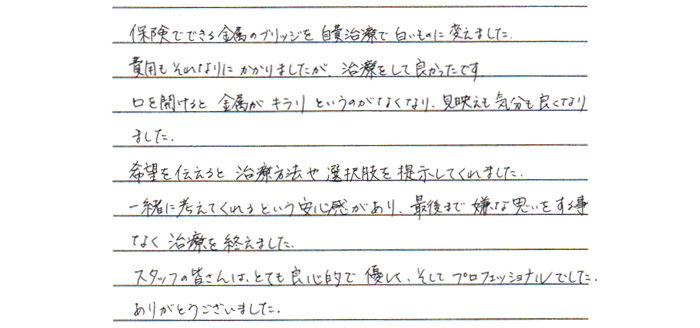 保険でできる金属のブリッジを自費治療で白いものに変えました.
費用もそれなりにかかりましたが、治療をして良かったです
口を開けると金属がキラリというのがなくなり、見映えも気分も良くなり
ました.
希望を伝えると治療方法や選択肢を提示してくれました.
一緒に考えてくれるという安心感があり、最後まで嫌な思いをする事
なく治療を終えました.
スタッフの皆さんは、とても良心的で優しく、そしてプロフェッショナルでした.
ありがとうございました.